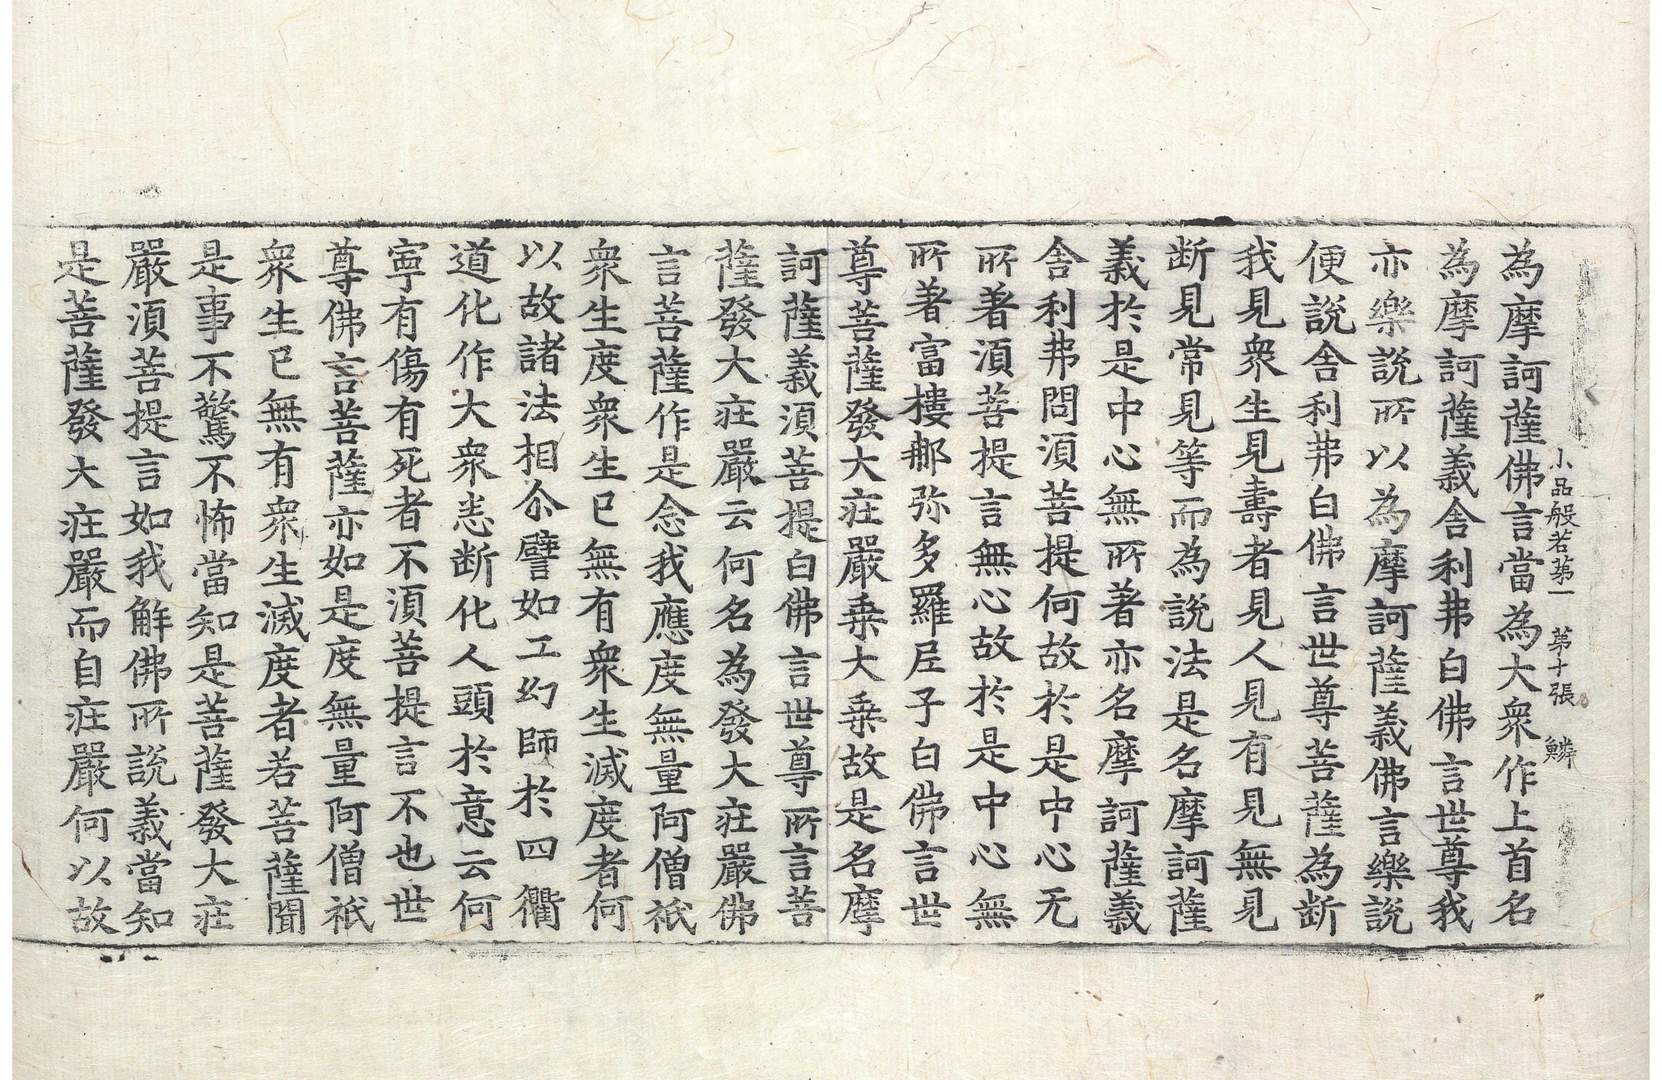 小品般若第一 第十張 鱗
為摩訶薩佛言當為大衆作上首名
為摩訶薩義舍利弗白佛言世尊我
亦樂說所以為摩訶薩義佛言樂說
便說舍利弗白佛言世尊菩薩為断
我見衆生見壽者見人見有見無見
断見常見等而為說法是名摩訶薩
義於是中心無所著亦名摩訶薩義
舍利弗問湏菩提何故於是中心无
所著湏菩提言無心故於是中心無
所著富樓那弥多羅尼子白佛言世
尊菩薩發大莊嚴乗大乗故是名摩
訶薩義湏菩提白佛言世尊所言菩
薩發大莊嚴云何名為發大莊嚴佛
言菩薩作是念我應度無量阿僧祇
衆生度衆生已無有衆生滅度者何
以故諸法相尒譬如工幻師於四衢
道化作大衆悉断化人頭於意云何
寧有傷有死者不湏菩提言不也世
尊佛言菩薩亦如是度無量阿僧祇
衆生已無有衆生滅度者若菩薩聞
是事不驚不怖當知是菩薩發大莊
嚴湏菩提言如我解佛所說義當知
是菩薩發大莊嚴而自莊嚴何以故